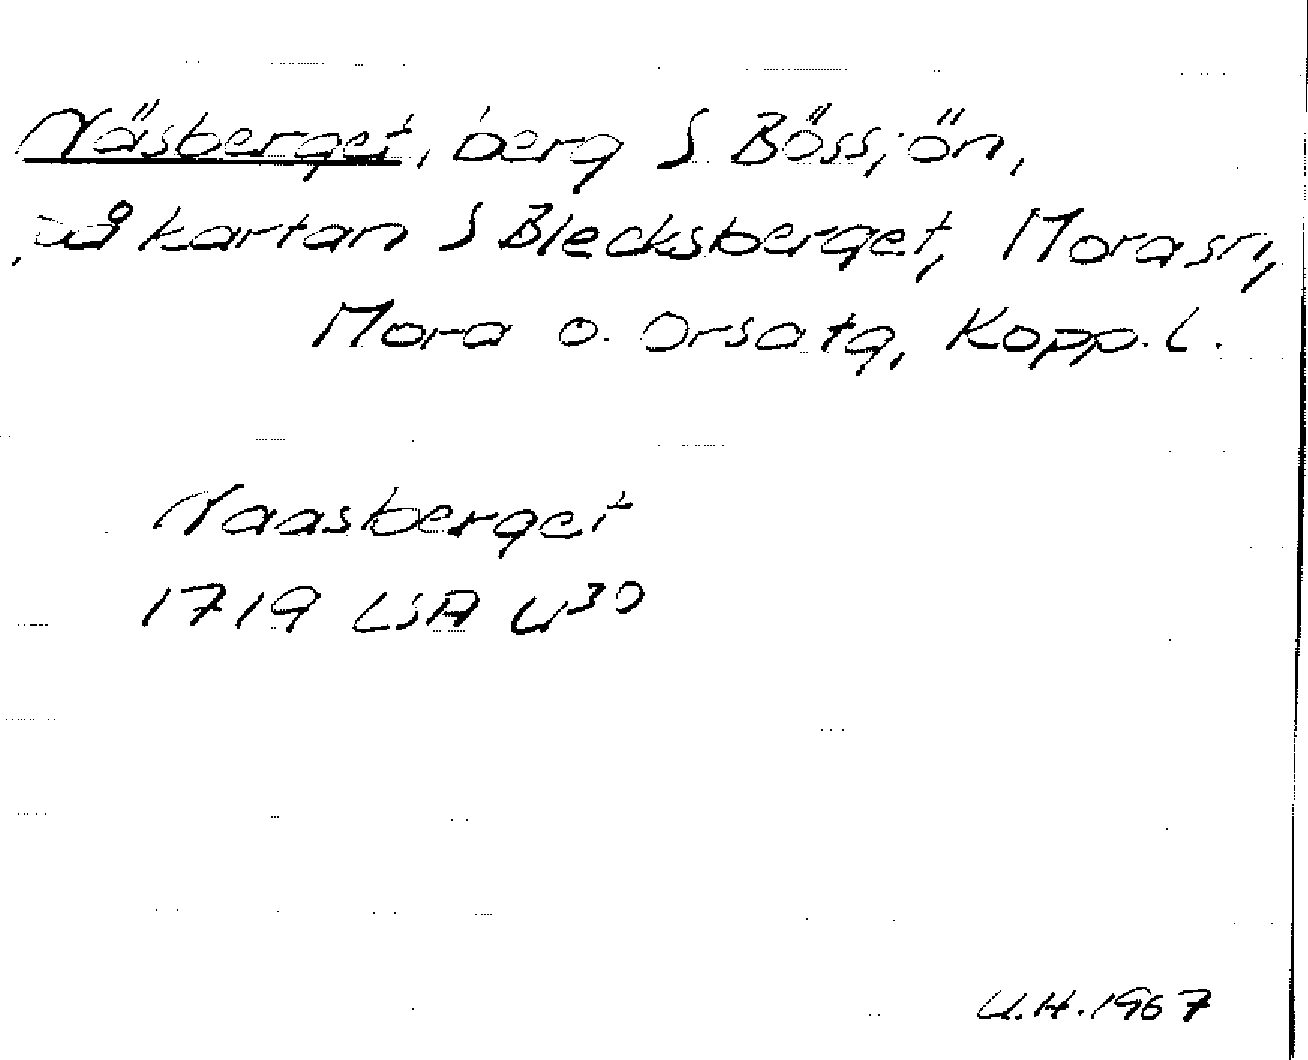 Näsberget, berg S Bössjön,
på kartan S Blecksberget, Morasn,
Mora o. Orsatg, Kopp.l.
Naasberget
1719 LSA U³⁰
U.H. 1967